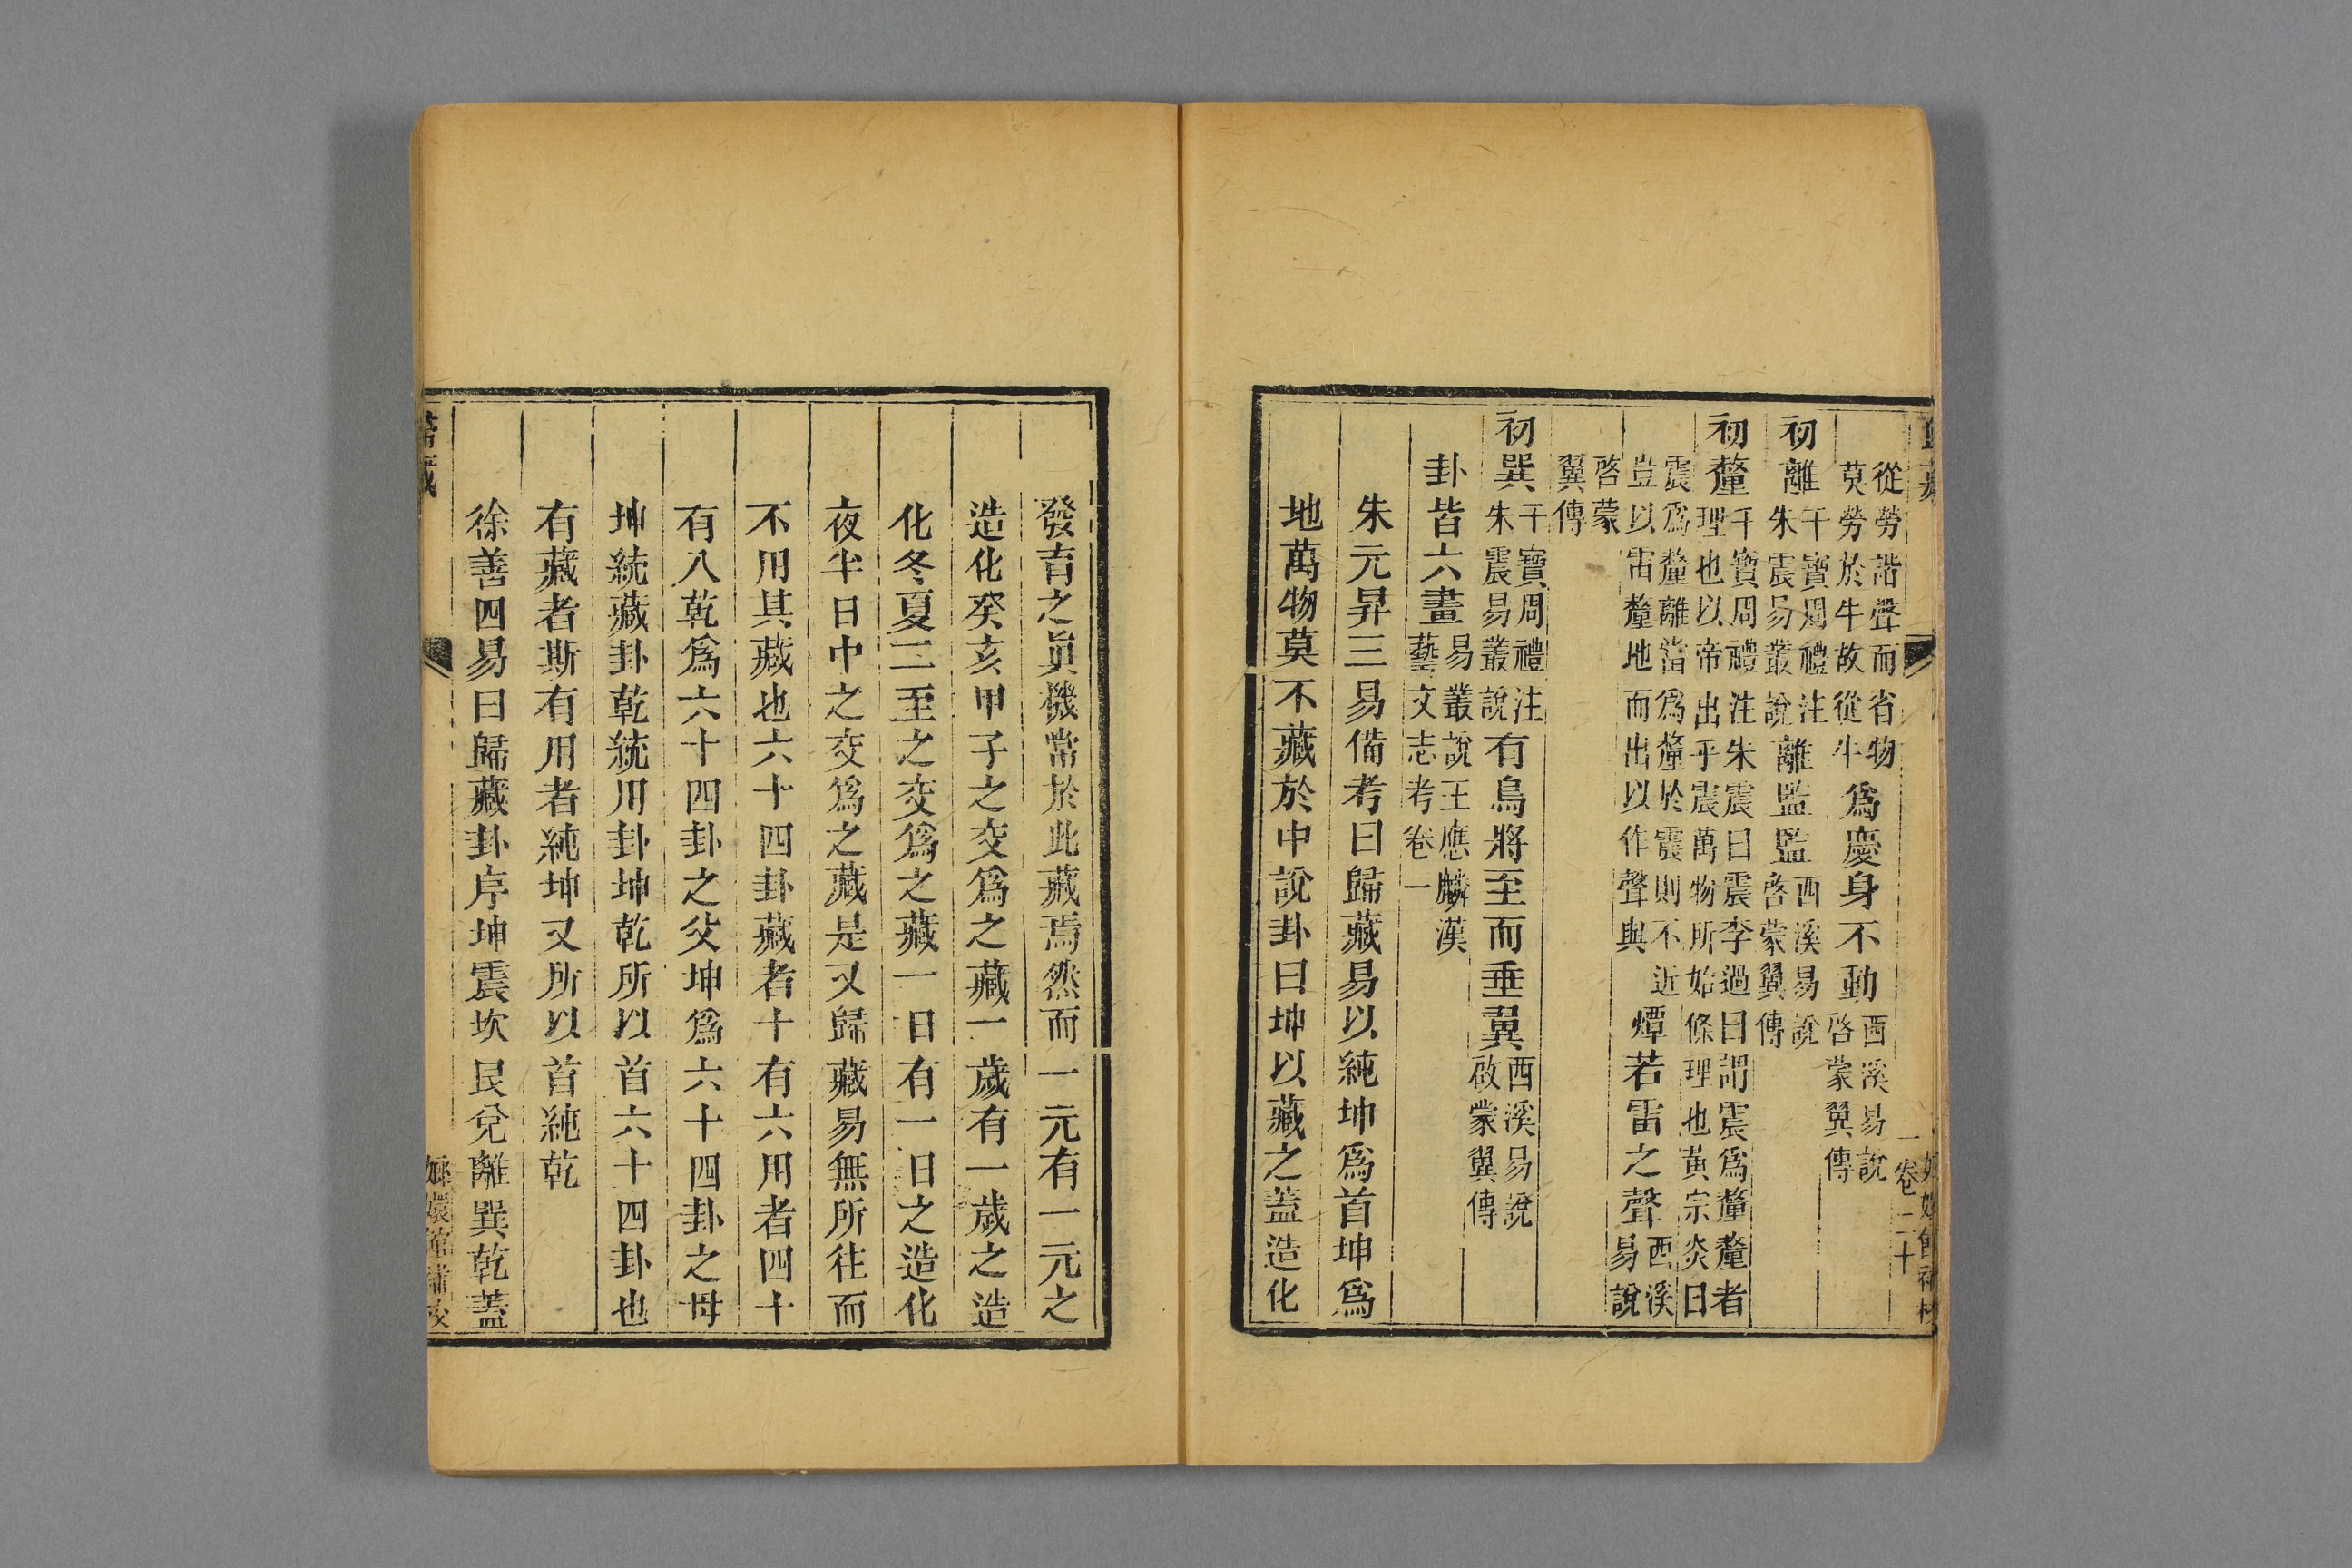 從勞諧聲而省物
莫勞於牛故從牛
爲慶身不動
西溪易說
啓蒙翼傳
初離
干寶周禮注
朱震易叢說
離監監
西溪易說
啓蒙翼傳
初釐
干寶周禮注朱震曰震李過曰謂震爲釐釐者
理也以帝出乎震萬物所始條理也黃宗炎曰
震爲釐離當爲釐於震則不近
豈以雷釐地而出以作聲與
燂若雷之聲
西溪
易說
啓蒙
翼傳
初巽
干寶周禮注
朱震易叢說
有鳥將至而垂翼
西溪易說
啟蒙翼傳
卦皆六畫
易叢說王應麟漢
藝文志考卷一
朱元昇三易備考曰歸藏易以純坤爲首坤爲
地萬物莫不藏於中說卦曰坤以藏之蓋造化
發育之眞機常於此藏焉然而一元有一元之
造化癸亥甲子之交爲之藏一歲有一歲之造
化冬夏二至之交爲之藏一日有一日之造化
夜半日中之交爲之藏是又歸藏易無所往而
不用其藏也六十四卦藏者十有六用者四十
有八乾爲六十四卦之父坤爲六十四卦之母
坤統藏卦乾統用卦坤乾所以首六十四卦也
有藏者斯有用者純坤又所以首純乾
徐善四易曰歸藏卦序坤震坎艮兌離巽乾蓋
卷二十